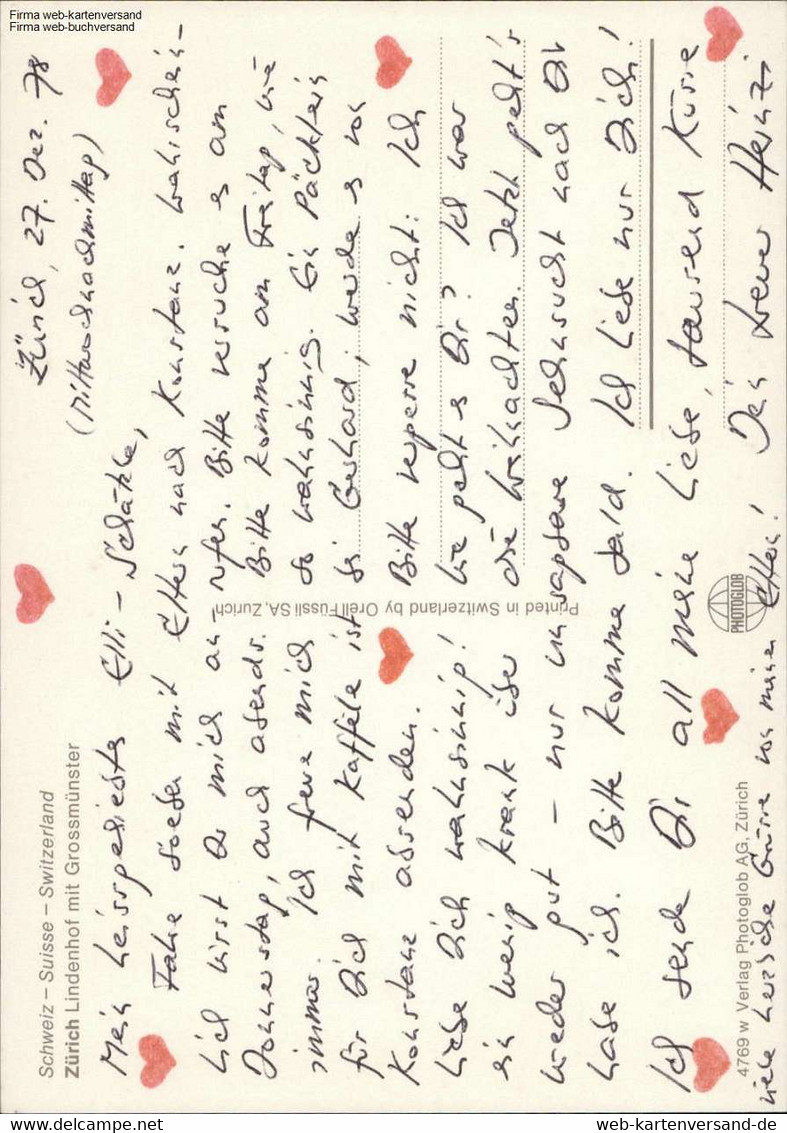 Firma web-kartenversand
Firma web-buchversand
Schweiz – Suisse – Switzerland
Zürich Lindenhof mit Grossmünster
Zürich, 27. Dez. 78
(Mittwochnachmittag)
Mein heissgeliebtes Elli-Schätzle,
Fahre soeben mit Eltern nach Konstanz. Wahrschein-
lich wirst Du mich an- rufen. Bitte versuche es am
Donnerstag, auch abends. Bitte komme am Freitag, wie
immer. Ich freue mich so wahnsinnig. Ein Päcklein
für Dich mit Kaffee ist bei Gerhard; werde es von
Konstanz absenden. Bitte vergesse nicht: Ich
liebe Dich wahnsinnig! Wie geht es Dir? Ich war
ein wenig krank über die Weihnachten. Jetzt geht's
wieder gut – nur unsagbare Sehnsucht nach Dir
habe ich. Bitte komme bald. Ich liebe nur Dich!
Ich sende Dir all meine Liebe, tausend Küsse
Dein treuer Heinz.
viele herzliche Grüsse von meinen Eltern!
Printed in Switzerland by Orell Füssli SA, Zurich
PHOTOGLOB
4769 w Verlag Photoglob AG, Zürich
web-kartenversand-de